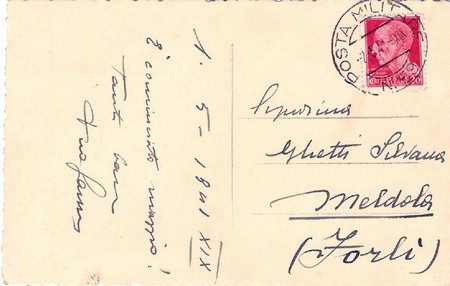 1. 5-1941 XIX
È cominciato maggio!
Tanti baci
POSTA MILITARE
Signorina
Ghetti Silvana
Meldola
(Forlì)